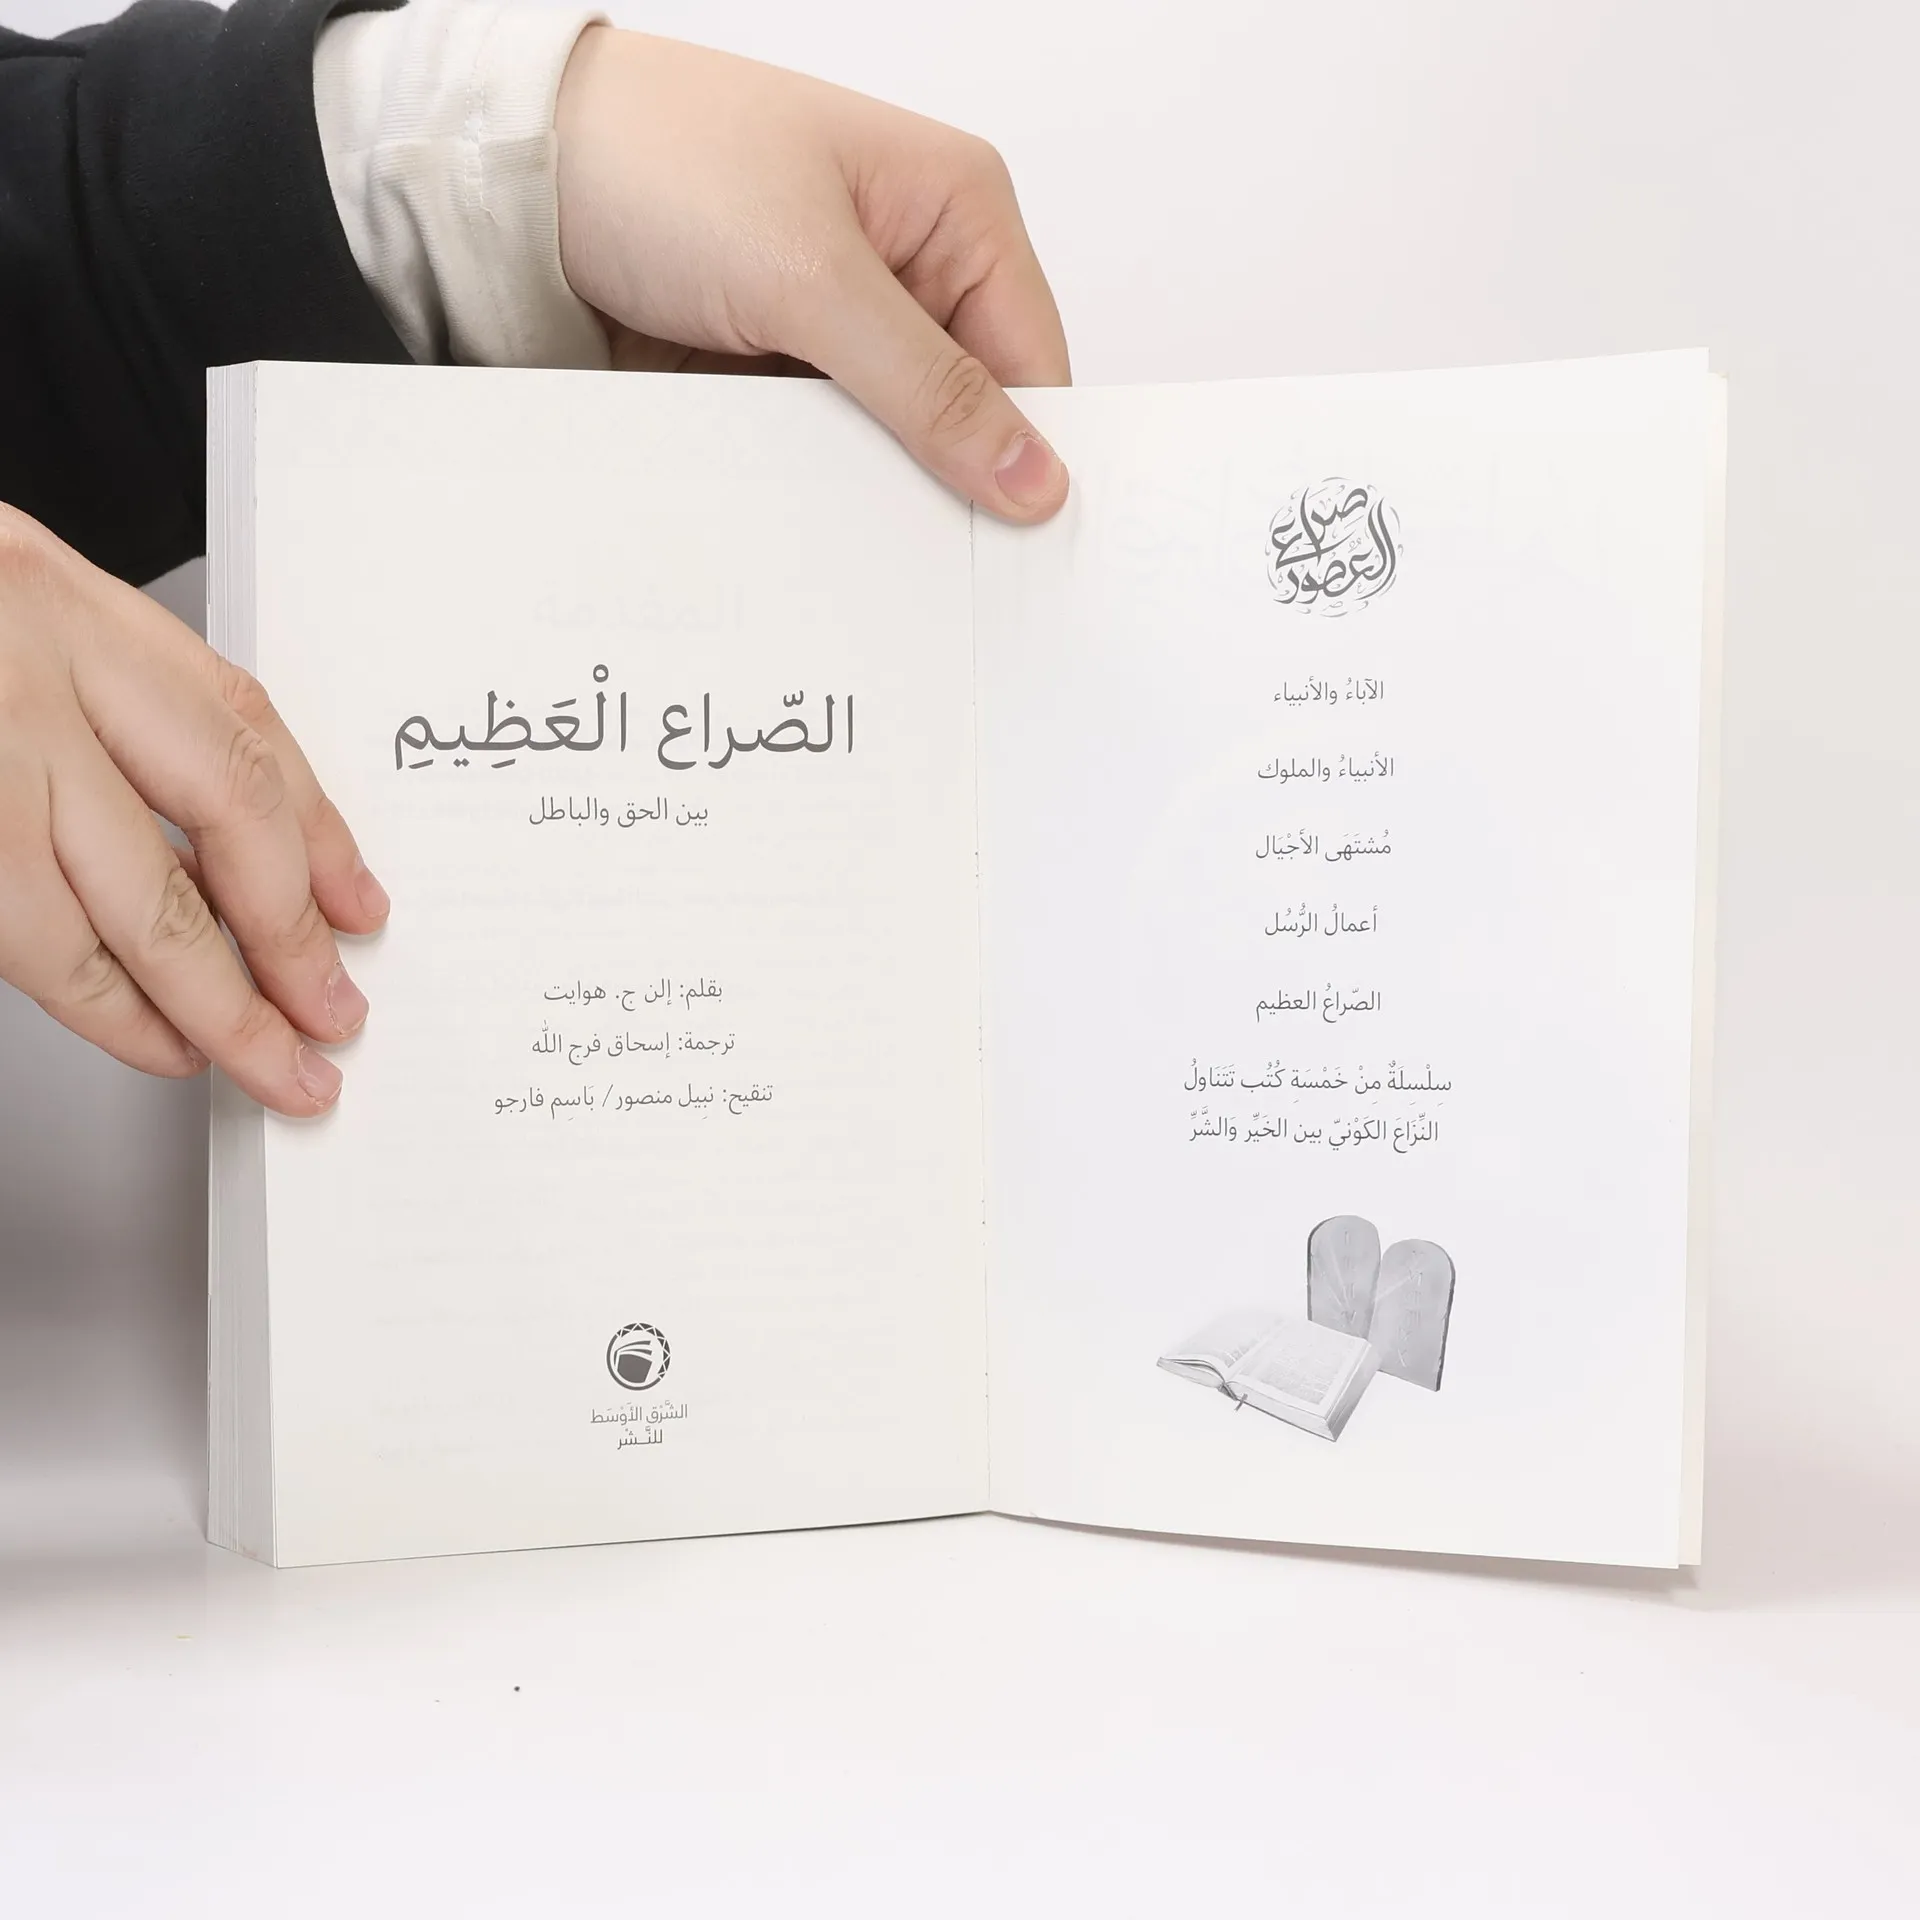 صراع
العصور
الآباءُ والأنبياء
الأنبياءُ والملوك
مُشتَهَى الأَجْيَال
أعمالُ الرُّسُل
الصّراعُ العظيم
سِلْسِلَةٌ مِنْ خَمْسَةِ كُتُب تَتَنَاولُ
النِّزَاعَ الكَوْنيّ بين الخَيِّر وَالشَّرِّ
الصّراع الْعَظِيمِ
بين الحق والباطل
بقلم: إلن ج. هوايت
ترجمة: إسحاق فرج الله
تنقيح: نبِيل منصور/ بَاسِم فارجو
الشَّرْق الأَوْسَط
للنَّـشْر